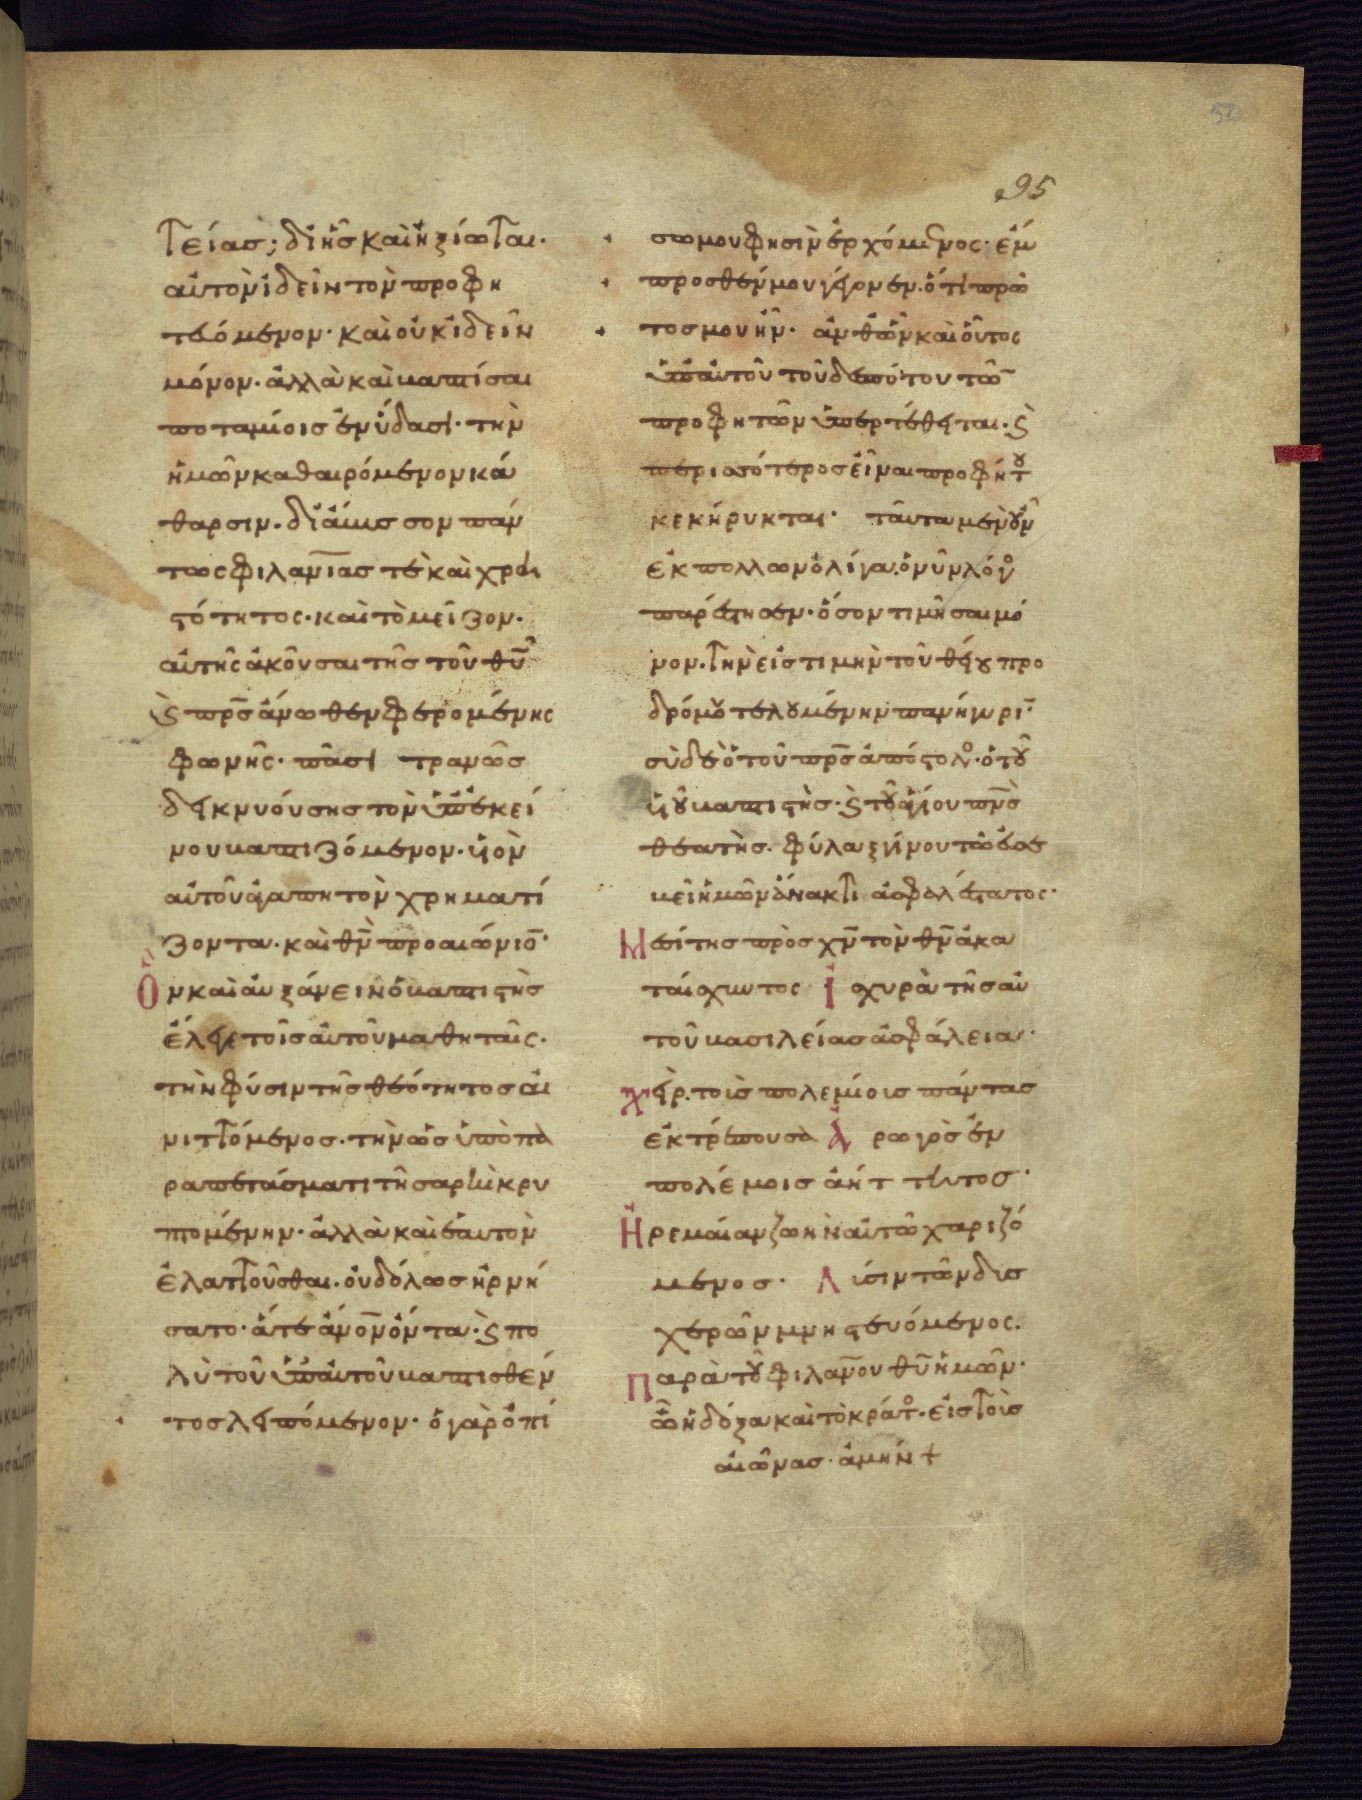 52
95
τείας; δι ἧς καὶ ἠξίωται·
αὐτὸν ἰδεῖν τὸν προφη
τευόμενον· καὶ οὐκ ἰδεῖν
μόνον· ἀλλὰ καὶ βαπτίσαι
ποταμίοις ἐν ὕδασι· τὴν
ἡμῶν καθαιρόμενον κά
θαρσιν· δι
τως φιλανιας τὲ καὶ χρη
στότητος· καὶ τὸ μεῖζον·
αὐτῆς ἀκοῦσαι τῆς τοῦ θυ
ϛ πρς ἄνωθεν φερομένης
φωνῆς· πᾶσι τρανῶς
δεικνυούσης τὸν ὑπ ἐκεί
νου βαπτιζόμενον· υἱὸν
αὐτοῦ ἀγαπητὸν χρηματί
ζοντα· καὶ θν προαιώνιο·
Ὃν καὶ αὐξάνειν ὁ βαπτιστὴς
ἔλεγε τοῖς αὐτοῦ μαθηταῖς·
τὴν φύσιν τῆς θεότητος αἰ
νιττόμενος· τὴν ὡς ὑπὸ πα
ραπετάσματι τῆ σαρκὶ κρυ
πτομένην· ἀλλὰ καὶ ἑαυτὸν
ἐλαττοῦσθαι· οὐδόλως ἠρνή
σατο· ἅτε ἀνον ὄντα· ϛ πο
λὺ τοῦ ὑπ αὐτοῦ βαπτισθέν
τος λειπόμενον· ὁ γὰρ ὀπί
σω μου φησὶν ἐρχόμενος· ἔμ
προσθέν μου γέγονεν· ὅτι πρῶ
τος μου ἦν· ἀνθ ὧν καὶ οὗτος
ὑπ αὐτοῦ τοῦ δεσπότου τῶ
προφητῶν ὑπερτέθειται· ϛ
περισσότερος εἶναι προφήτου
κεκήρυκται· ταῦτα μὲν οὖν
ἐκ πολλῶν ὀλίγα· ὁ νῦν λόγο
παρέστησεν· ὅσον τιμῆσαι μό
νον· τὴν εἰς τιμὴν τοῦ θείου προ
δρόμου τελουμένην πανήγυρι·
σὺ δὲ ὁ τοῦ πρς ἀπόστολο· ὁ τοῦ
υἱοῦ βαπτιστὴς· ϛ τοῦ ἁγίου πνς
θεατὴς· φύλαξ γίνου τῶ εὐσε
βεῖ ἡμῶν ἄνακτι ἀσφαλέστατος·
Μεσίτης πρὸς χν τὸν θν ἀκα
ταίσχυντος Ἰσχυρὰ τῆς αὐ
τοῦ βασιλείας ἀσφάλεια·
Χεὶρ τοὺς πολεμίους πάντας
ἐκτρέπουσα Ἀρωγὸς ἐν
πολέμοις ἀήττητος·
Ἠρεμαίαν ζωὴν αὐτῶ χαριζό
μενος· Λύσιν τῶν δυσ
χερῶν μνηστευόμενος·
Παρὰ τοῦ φιλανου θυ ἡμῶν·
ὧ ἡ δόξα καὶ τὸ κράτο· εἰς τοὺς
αἰῶνας· ἀμήν +